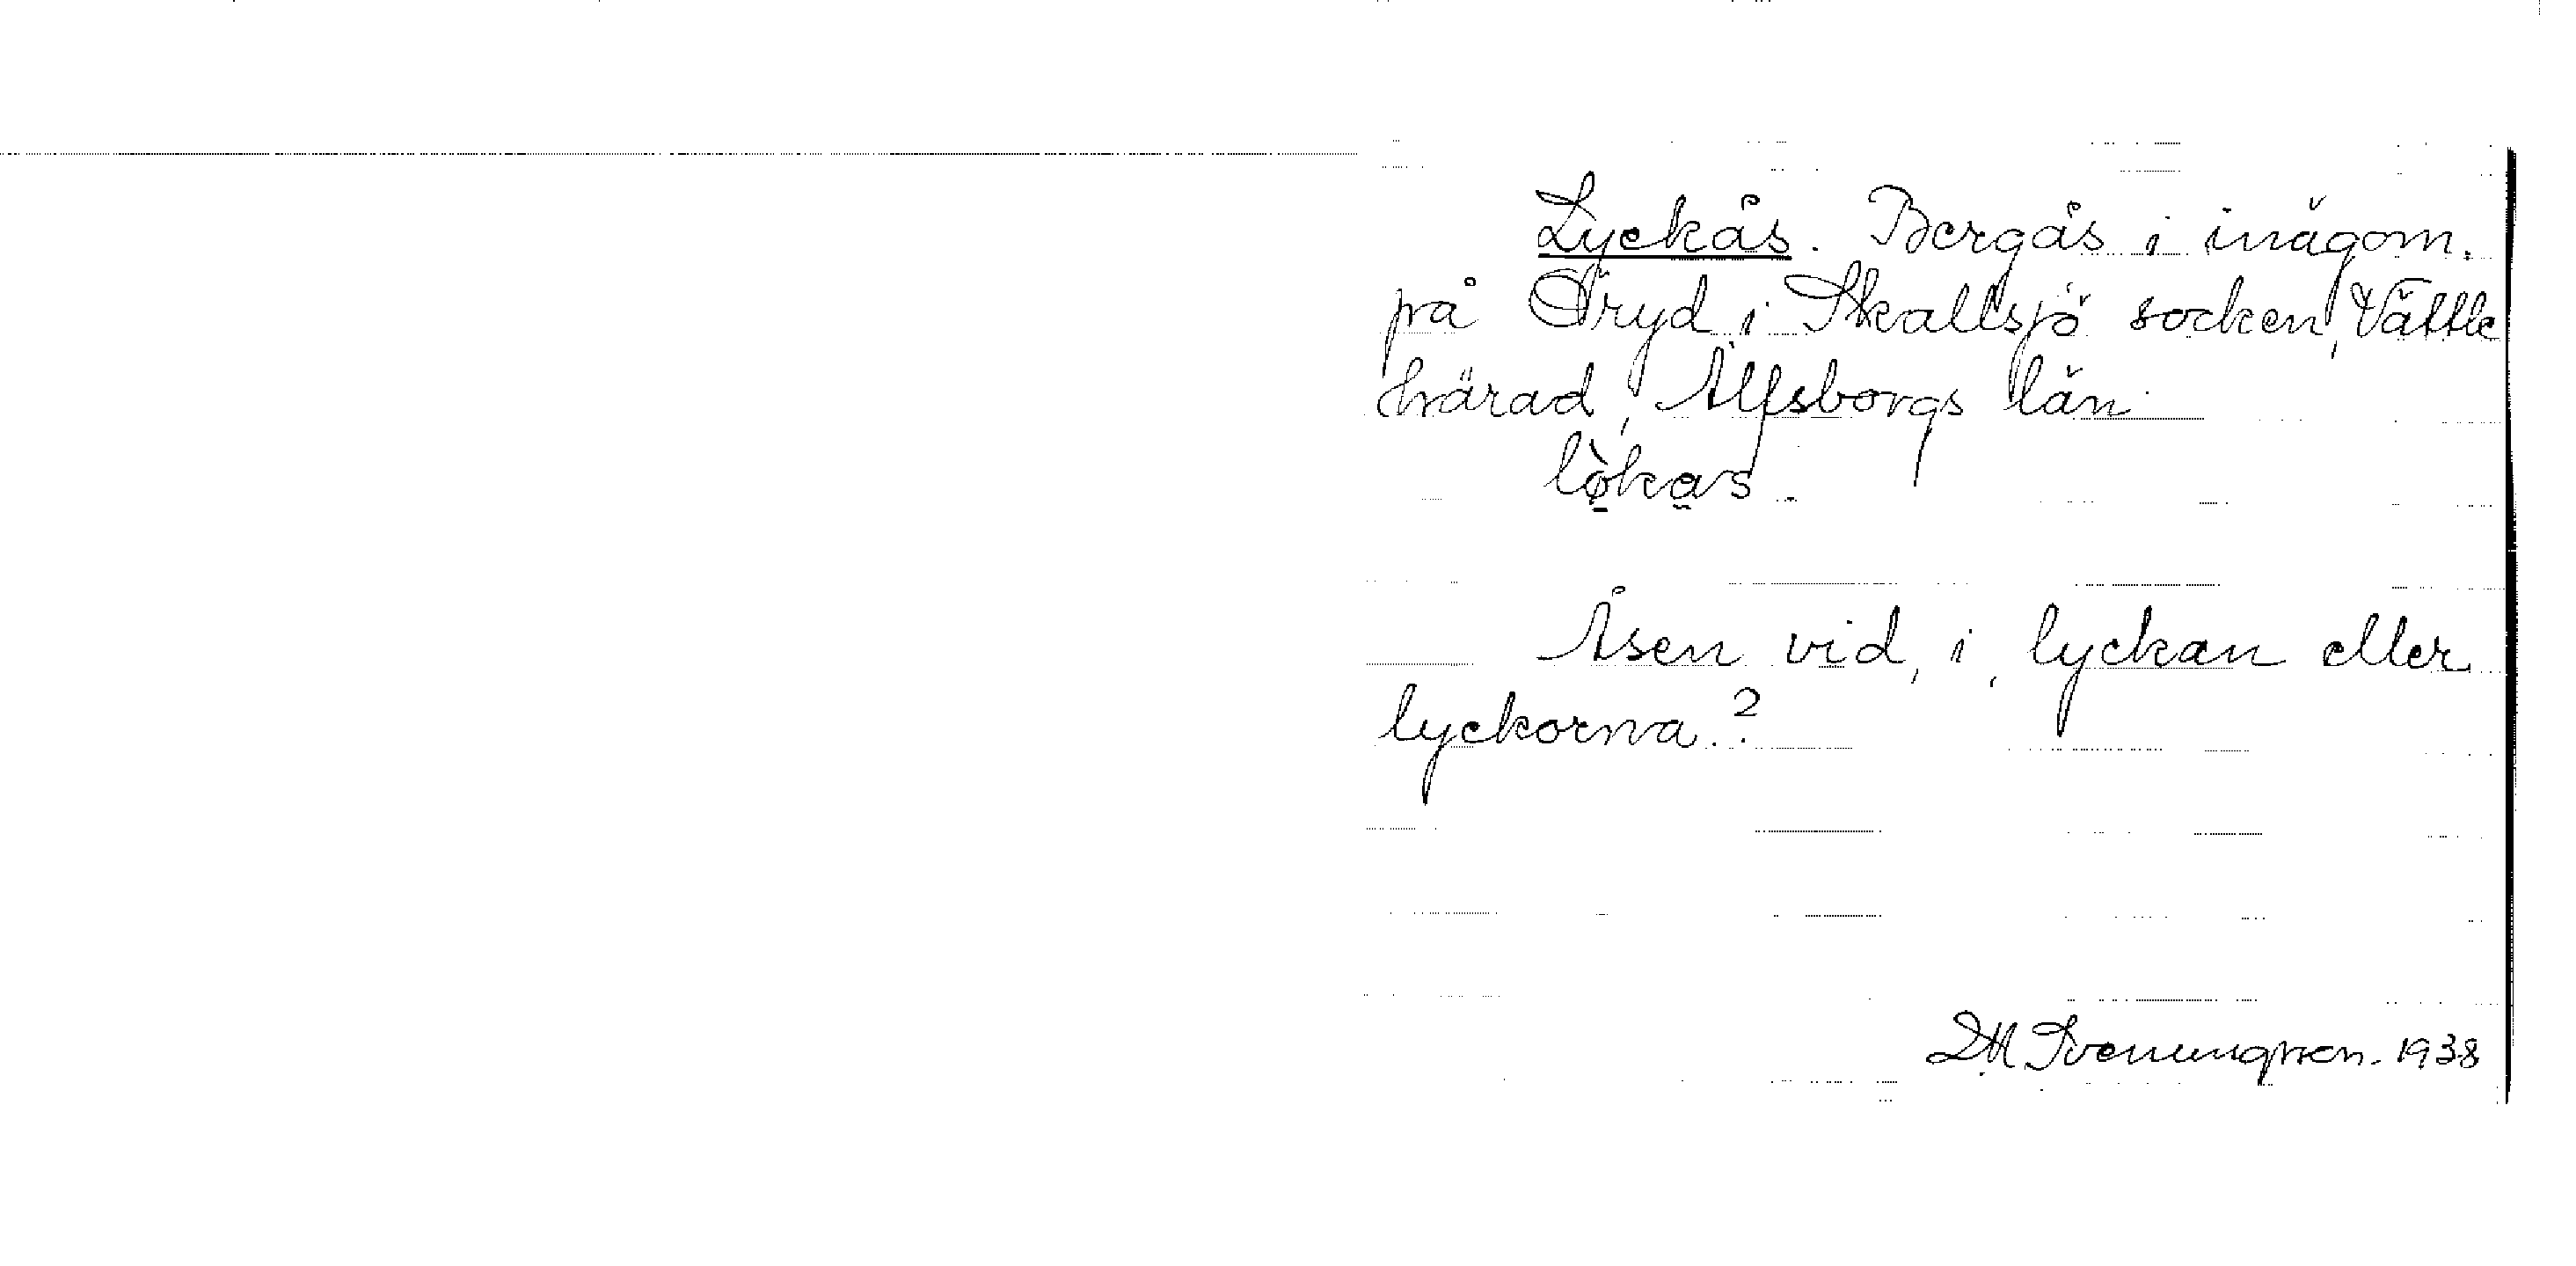 Lyckås. Bergås i inägom.
på Öryd i Skallsjö socken, Vättle
härad, Älfsborgs län
lø̀kas
Åsen vid, i, lyckan eller
lyckorna?
1938